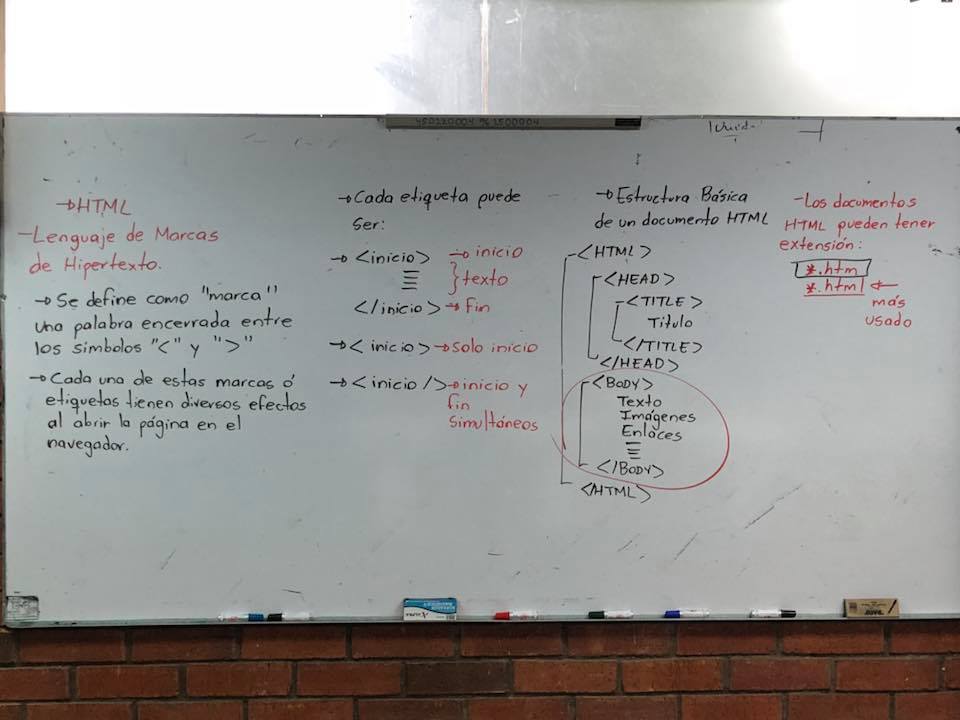 →HTML
-Lenguaje de Marcas
de Hipertexto.
→Se define como "marca"
una palabra encerrada entre
los simbolos "<" y ">"
→Cada una de estas marcas ó
etiquetas tienen diversos efectos
al abrir la página en el
navegador.
→Cada etiqueta puede
ser:
→<inicio> →inicio
}texto
</inicio>→Fin
→<inicio>→solo inicio
→<inicio/>→inicio y
fin
simultáneos
→Estructura Básica
de un documento HTML
<HTML>
<HEAD>
<TITLE>
Titulo
</TITLE>
</HEAD>
<BODY>
Texto
Imágenes
Enlaces
</BODY>
</HTML>
-Los documentos
HTML pueden tener
extensión:
*.htm
*.html ←
más
usado